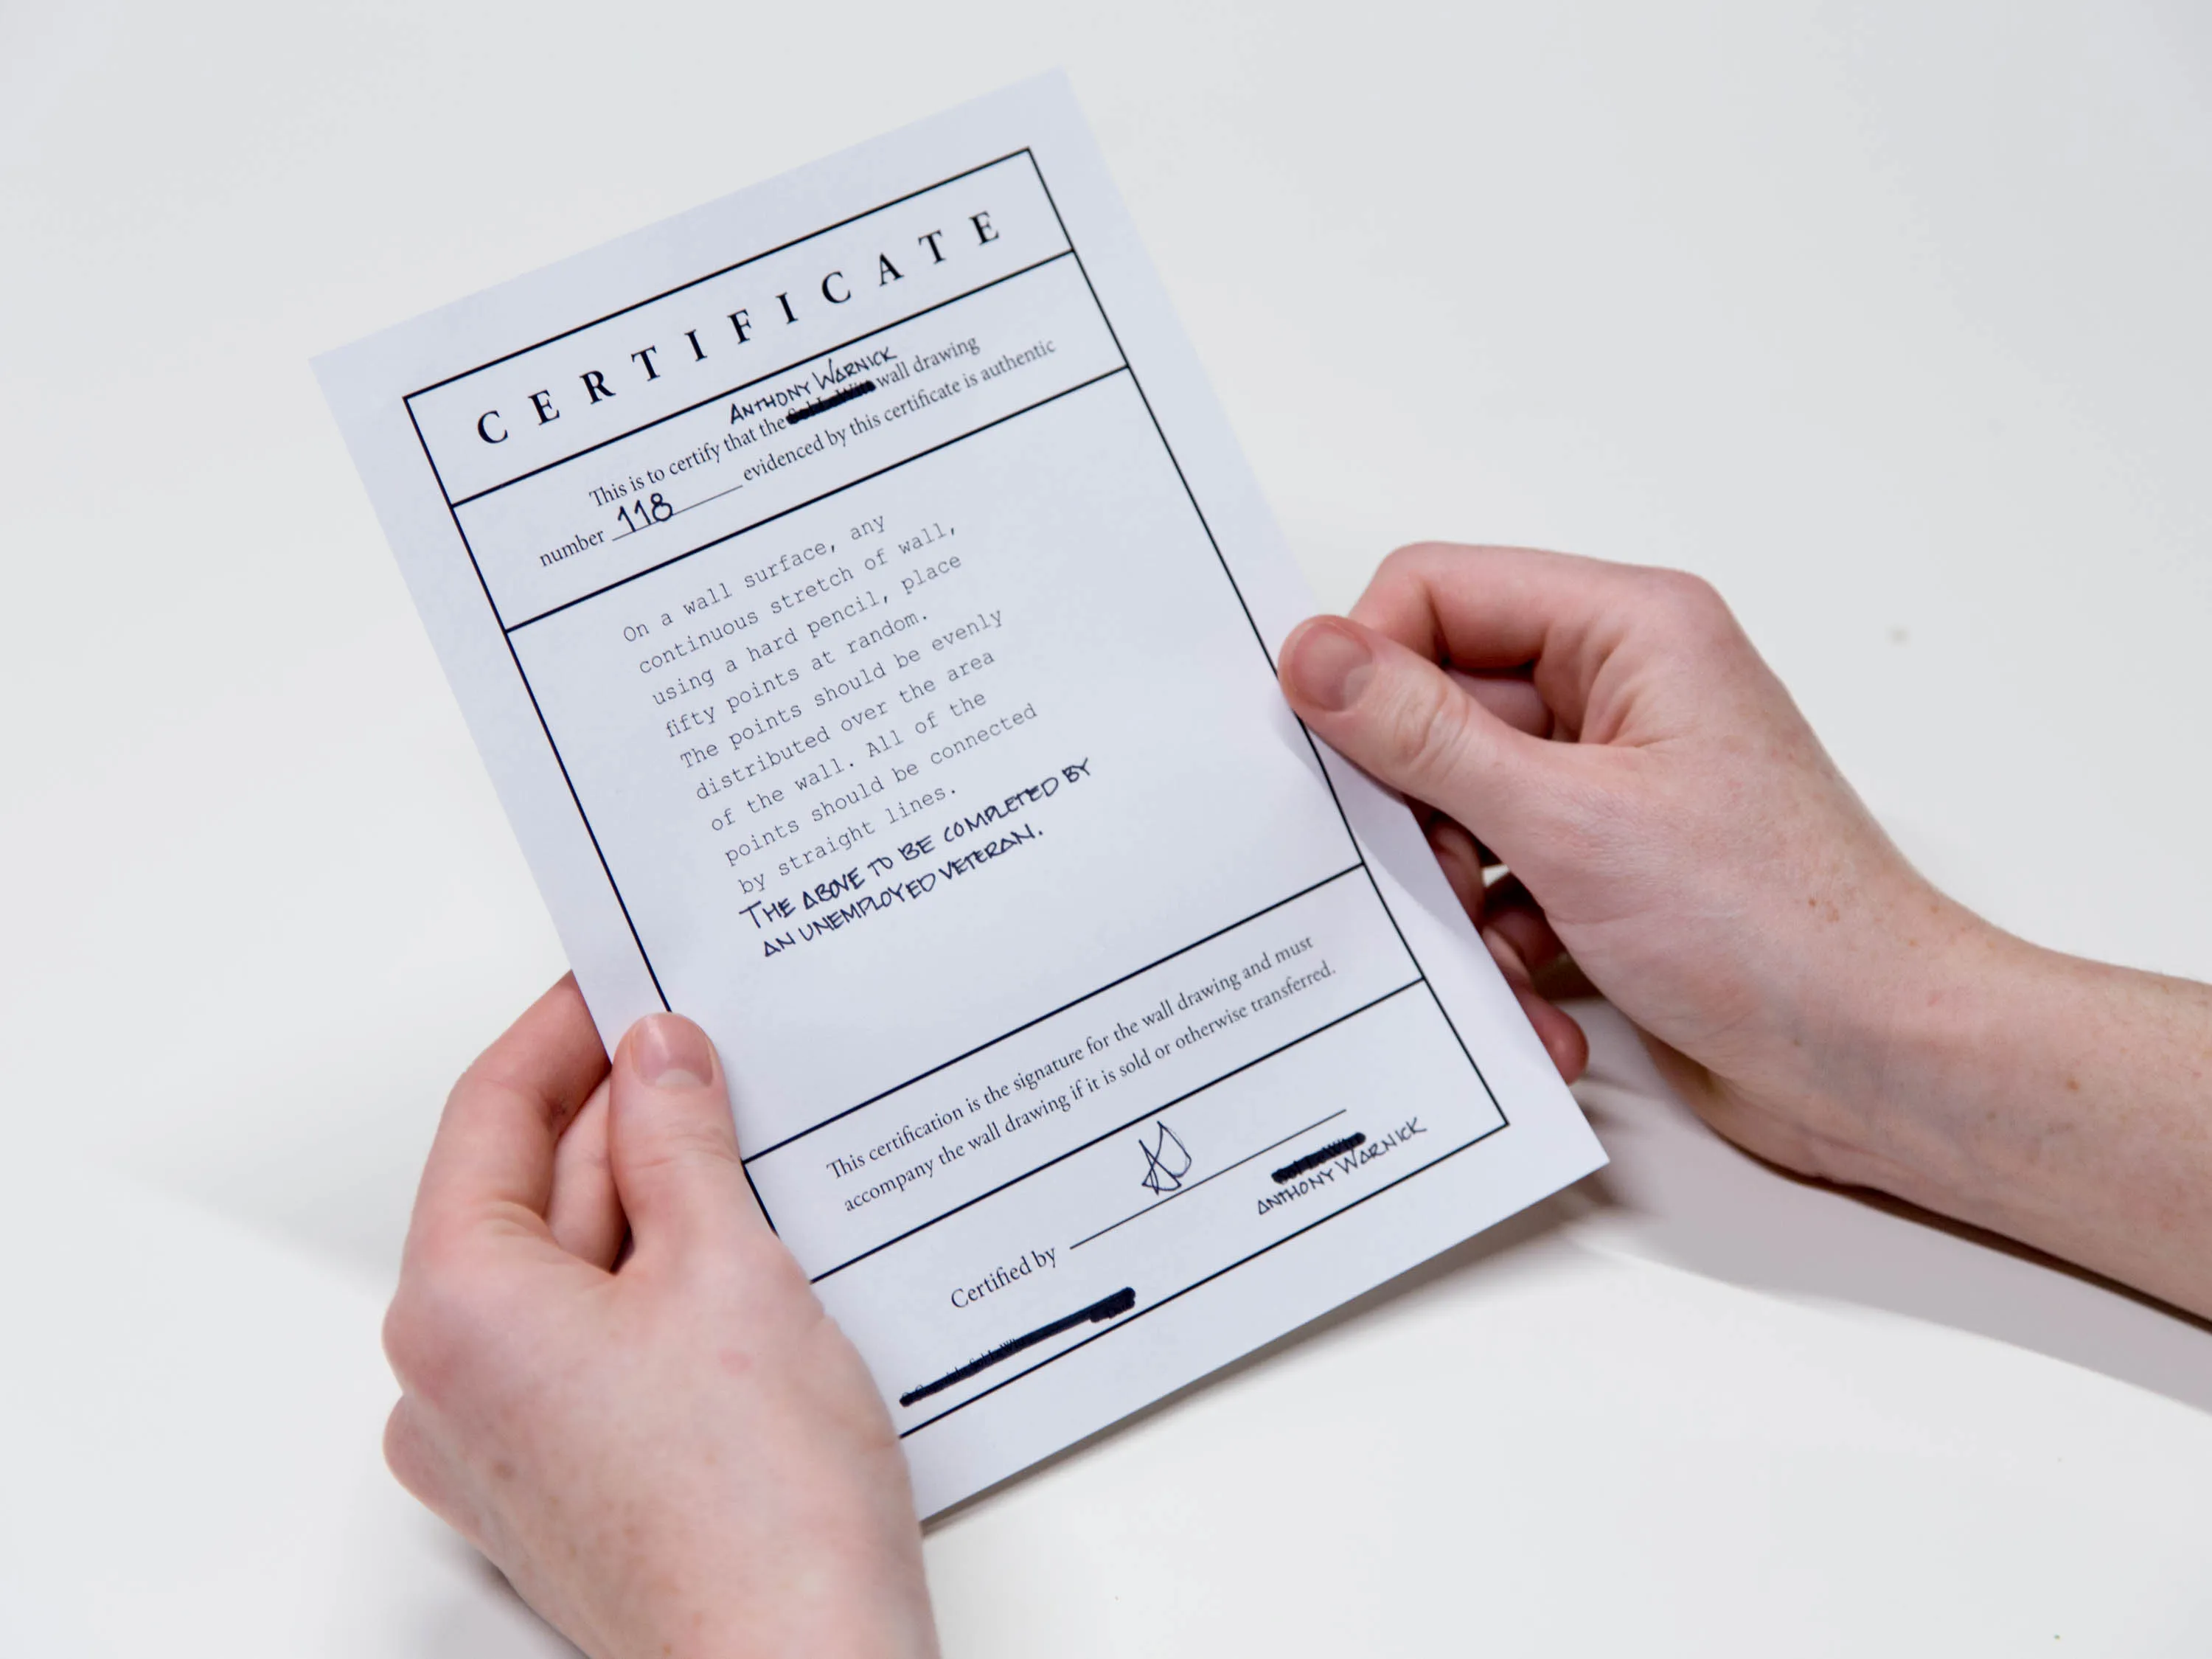 CERTIFICATE
ANTHONY WARNICK
This is to certify that the wall drawing
number 118 evidenced by this certificate is authentic
On a wall surface, any
continuous stretch of wall,
using a hard pencil, place
fifty points at random.
The points should be evenly
distributed over the area
of the wall. All of the
points should be connected
by straight lines.
THE ABOVE TO BE COMPLETED BY
AN UNEMPLOYED VETERAN.
This certification is the signature for the wall drawing and must
accompany the wall drawing if it is sold or otherwise transferred.
Certified by
ANTHONY WARNICK